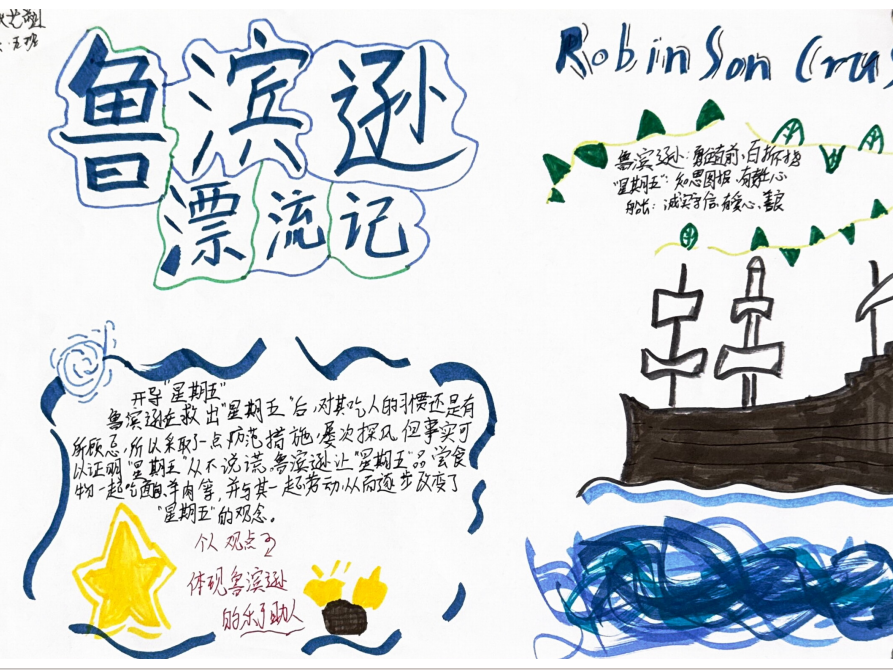 鲁滨逊
漂流记
Robinson Crus
鲁滨逊：勇往直前、百折
"星期五"：知恩图报、有
船长：诚实守信、有爱心、善良
开导"星期五"
鲁滨逊在救出"星期五"后，对其吃人的习惯还是有
所顾忌，所以采取了一点防范措施，屡次探风，但事实可
以证明"星期五"从不说谎。鲁滨逊让"星期五"品尝食
物一起吃面包、羊肉等，并与其一起劳动，从而逐步改变了
"星期五"的观念。
个人观点
体现鲁滨逊
的乐于助人